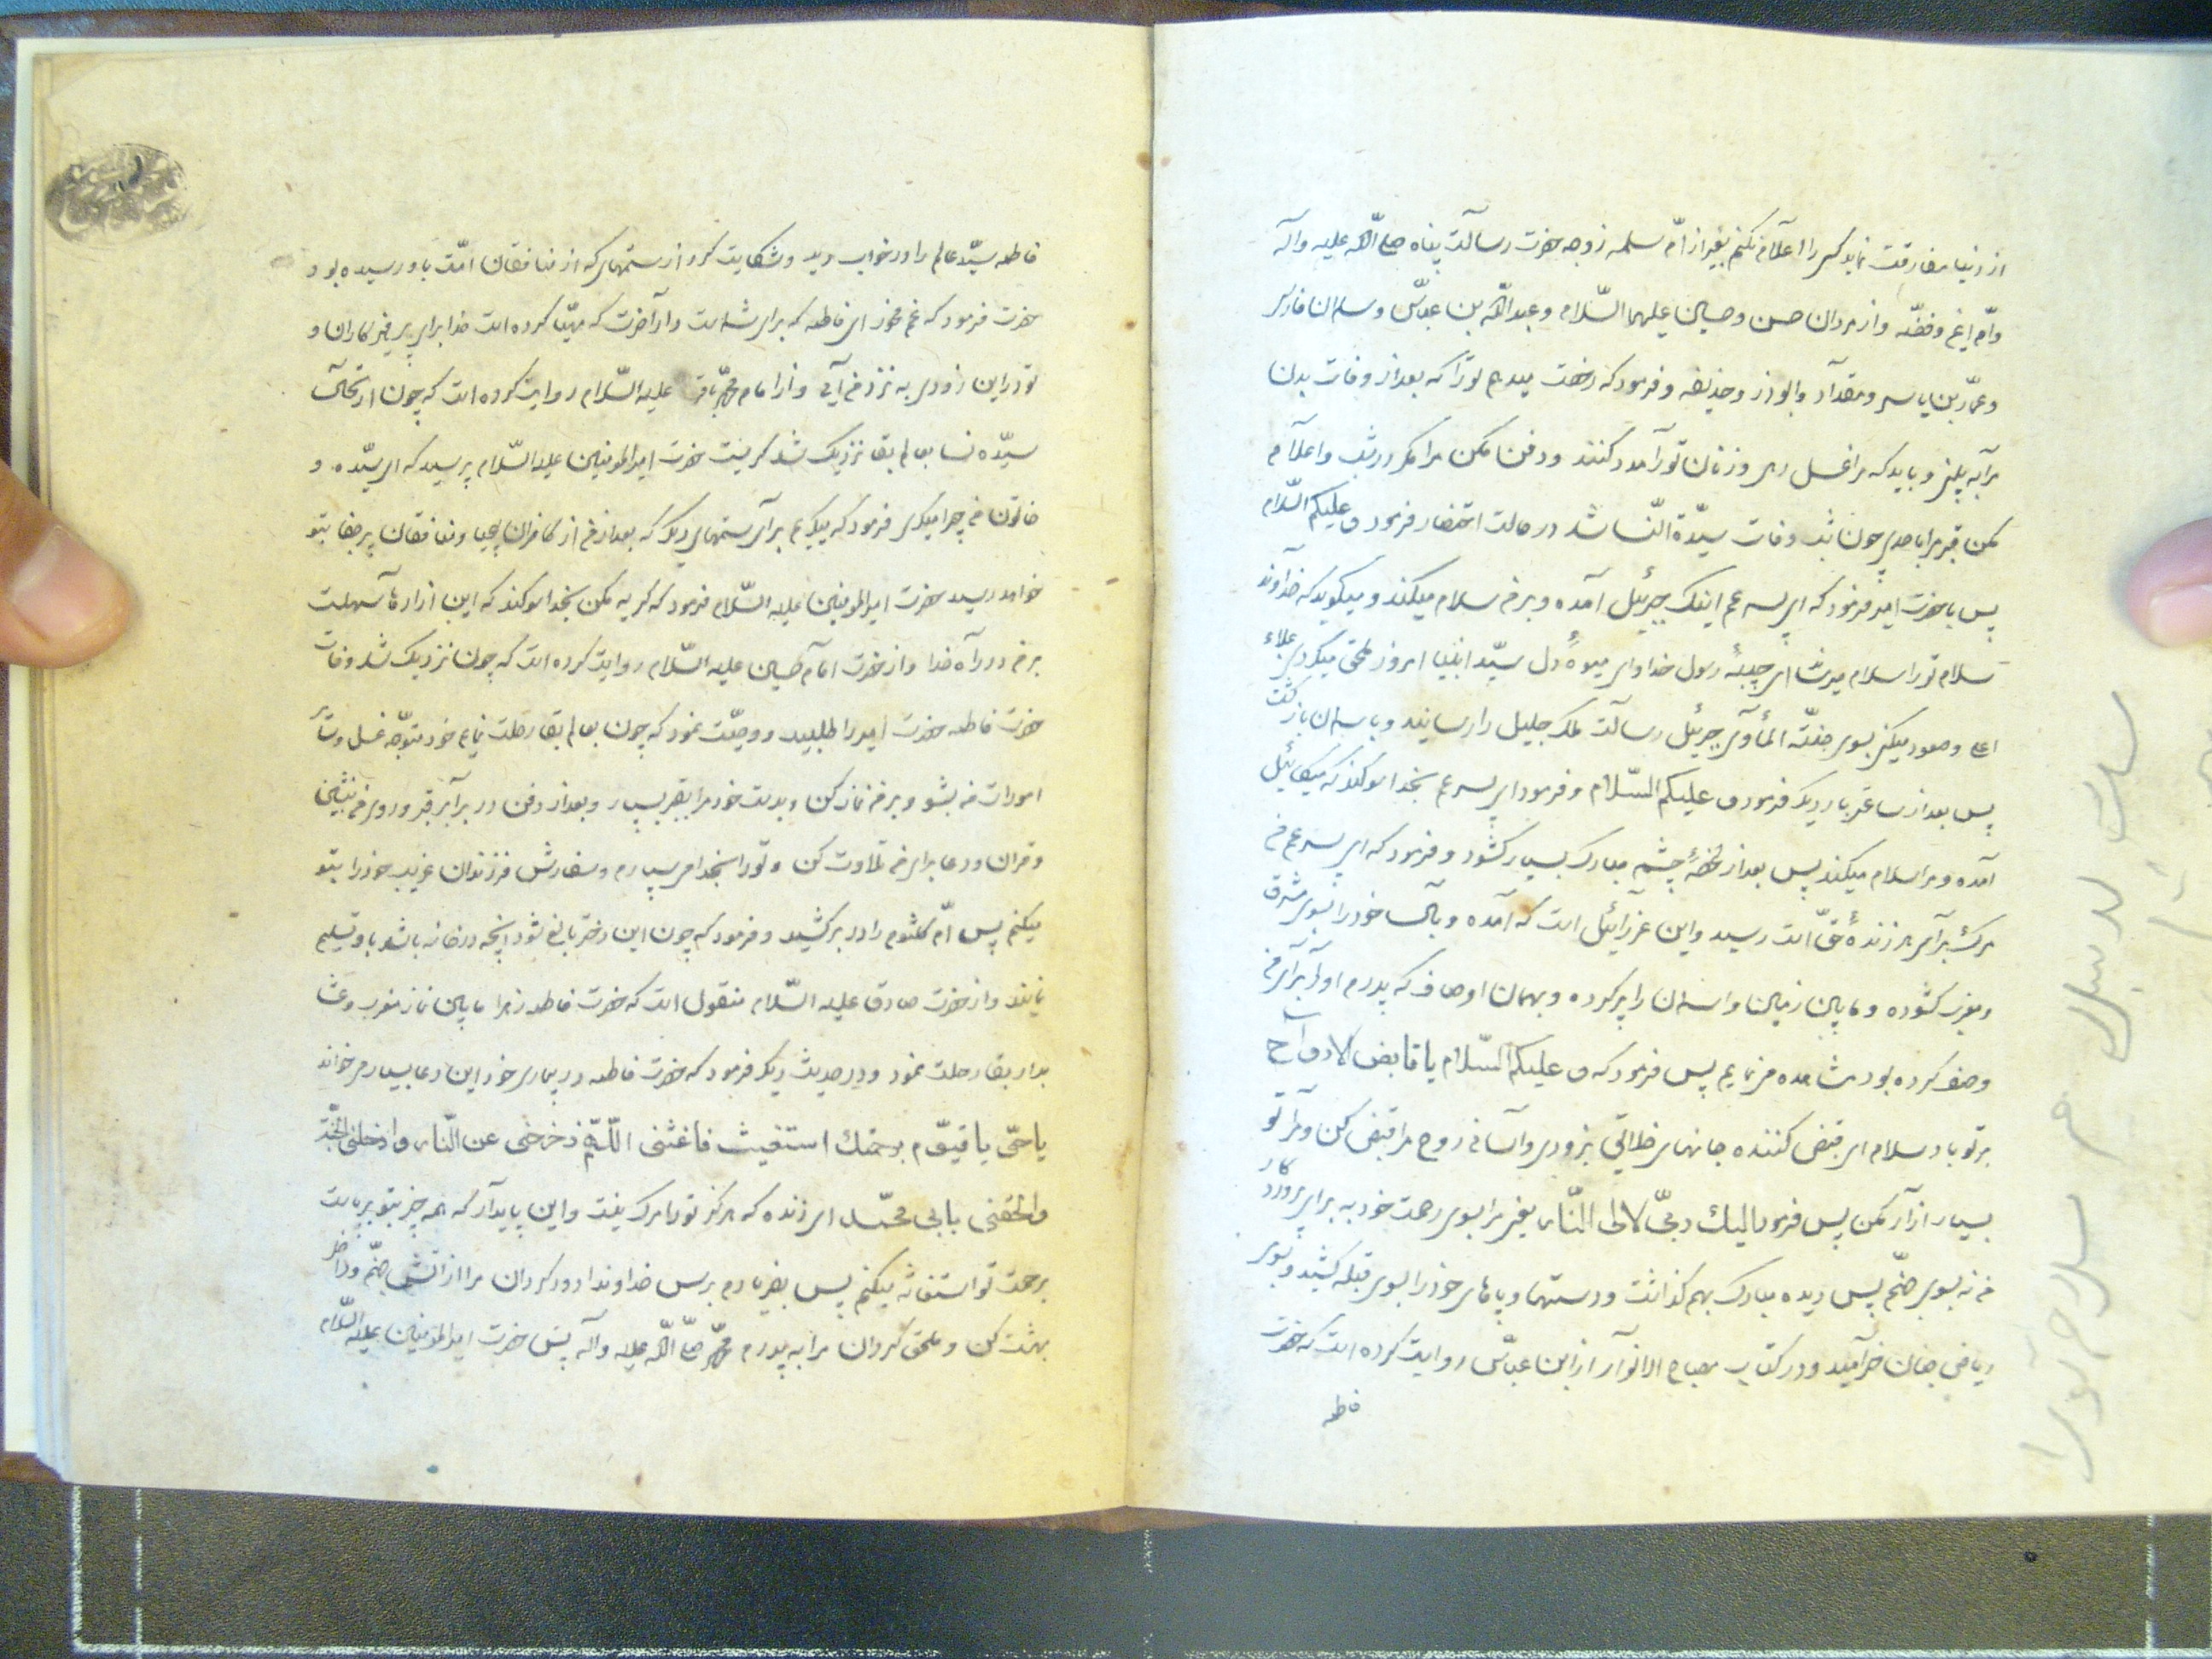 از دنیا مفارقت نماید کسی را اعلام نکنم بغیر از امّ سلمه زوجه حضرت رسالت پناه صلی اللّه علیه وآله
وامّ ایمن وفضّه واز مردان حسن وحسین علیهما السّلام وعبداللّه بن عبّاس وسلمان فارسی
وعمّار بن یاسر ومقداد وابوذر وحذیفه وفرمود که رخصت میدهم تو را که بعد از وفات بدن
مرا به بینی وباید که مرا غسل دهی وزنان تو را مدد کنند ودفن مکن مرا مگر در شب واعلام
مکن قبر مرا باحدی چون شب وفات سیّدة النّسا شد در حالت احتضار فرمود وعلیکم السّلام
پس با حضرت امیر فرمود که ای پسر عم اینک جبرئیل آمده وبر من سلام میکند ومیگوید که خداوند
سلام تو را سلام میرساند ای حبیبهٔ رسول خدا وای میوهٔ دل سیّد انبیا امروز ملحق میگردی برملاء
اعلی وصعود میکنی بسوی جنّة المأوی جبرئیل رسالت ملک جلیل را رسانید وباسمان بازگشت
پس بعد از ساعتی بار دیگر فرمود وعلیکم السّلام وفرمود ای پسر عم بخدا سوکند که میکائیل
آمده ومرا سلام میکند پس بعد از لحظهٔ چشم مبارک بسیار کشود وفرمود که ای پسر عم من
مرک برای هر زندهٔ حقّ است رسید واین عزرائیل است که آمده وبالهای خود را بسوی مشرق
ومغرب کشوده ومابین زمین واسمان را پر کرده وبهمان اوصاف که پدرم او را برای من
وصف کرده بود مشاهده می نمایم پس فرمود که وعلیکم السّلام یا قابض الارواح
بر تو باد سلام ای قبض کننده جانهای خلایق بزودی وآسانی روح مرا قبض کن ومرا تو
بسیار ازار مکن پس فرمود الیك ربّی لا الی النّار یعنی مرا بسوی رحمت خود به بر ای پروردکار
من نه بسوی جهنّم پس دیده مبارک بهم کذاشت ودستها وپاهای خود را بسوی قبله کشید وبسوی
ریاض جنان خرامید ودر کتاب مصباح الانوار از ابن عبّاس روایت کرده است که حضرت
فاطمه
فاطمه سیّد عالم را در خواب دید وشکایت کرد از ستمهای که از منافقان امّت باو رسیده بود
حضرت فرمود که غم مخور ای فاطمه که برای شماست دار آخرت که مهیّا کرده است خدا برای پرهیزکاران و
تو در این زودی به نزد من آیی واز امام محمّد باقر علیه السّلام روایت کرده است که چون ارتحال
سیّده نسا بعالم بقا نزدیک شد کریست حضرت امیرالمومنین علیه السّلام پرسید که ای سیّده و
خاتون من چرا میکری فرمود که میکریم برای ستمهای دیکر که بعد از من از کافران بیحیا ومنافقان پر جفا بتو
خواهد رسید حضرت امیرالمومنین علیه السّلام فرمود که کریه مکن بخدا سوکند که این ازارها سهلست
بر من در راه خدا واز حضرت امام حسین علیه السّلام روایت کرده است که چون نزدیک شد وفات
حضرت فاطمه حضرت امیر را طلبید ووصیّت نمود که چون بعالم بقا رحلت نمایم خود متوجّه غسل وسایر
امورات من بشو وبر من نماز کن وبدست خود مرا بقبر بسپار وبعد از دفن در برابر قبر وروی من بنشین
وقران ودعا برای من تلاوت کن وتو را بخدا می سپارم وسفارش فرزندان غریب خود را بتو
میکنم پس امّ کلثوم را در بر کشید وفرمود که چون این دختر بالغ شود انچه در خانه باشد باو تسلیم
نمایند واز حضرت صادق علیه السّلام منقول است که حضرت فاطمه زهرا مابین نماز مغرب وعشا
بدار بقا رحلت نمود ودر حدیث دیکر فرمود که حضرت فاطمه در بیماری خود این دعا بسیار می خواند
یا حیّ یا قیّوم برحمتك استغیث فاغثنی اللّهمّ زحزحنی عن النّار وادخلنی الجنّة
والحقنی بابی محمّد ای زنده که هرکز تو را مرک نیست واین پایدار که همه چیز بتو برپاست
برحمت تو استغاثه میکنم پس بفریادم برس خداوندا دور کردان مرا از اتش جهنّم وداخل
بهشت کن وملحق کردان مرا به پدرم محمّد صلّی اللّه علیه وآله پس حضرت امیرالمومنین علیه السّلام